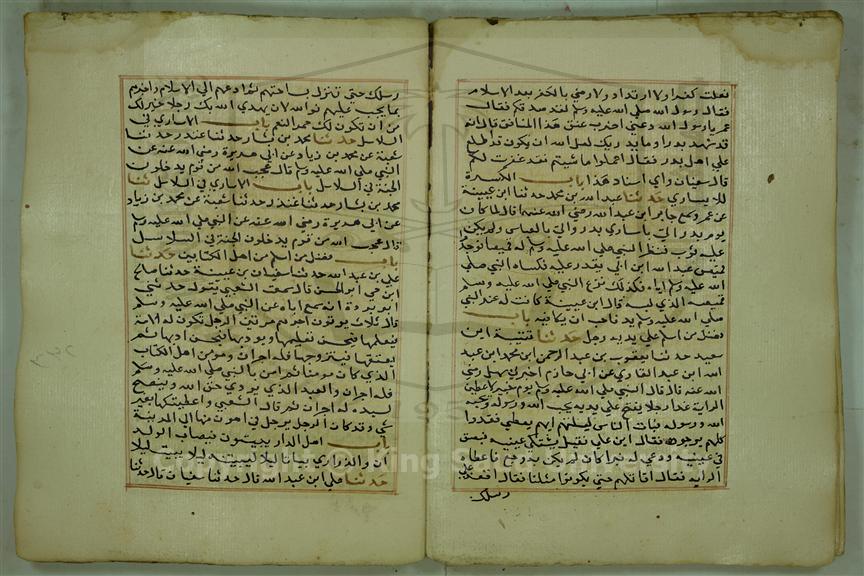 فعلت كفرا ولا ارتدادا ولا رضي بالكفر بعد الاسلام
فقال رسول الله صلي الله عليه وسلم لقد صدقكم فقال
عمر يا رسول الله دعني اضرب عنق هذا المنافق قال انه
قد شهد بدرا وما يدريك لعل الله ان يكون قد طلع
علي اهل بدر فقال اعملوا ما شيتم فقد غفرت لكم
قال سفيان واي اسناد هذا باب الكسوة
للاساري حدثنا عبد الله بن محمد حدثنا ابن عيينة
عن عمرو سمع جابر ابن عبد الله رضي الله عنهما قال لما كان
يوم بدر اتي باساري بدر واتي بالعباس ولم يكن
عليه ثوب فنظر النبي صلي الله عليه وسلم له قميصا فوجدوا
قميص عبد الله ابن ابي يقدر عليه فكساه النبي صلي
الله عليه وسلم اياه فلذلك نزع النبي صلي الله عليه وسلم
قميصه الذي البسه قال ابن عيينة كانت له عند النبي
صلي الله عليه وسلم يد فاحب ان يكافيه باب
فضل من اسلم علي يديه رجل حدثنا قتيبة ابن
سعيد حدثنا يعقوب بن عبد الرحمن ابن محمد ابن عبد
الله ابن عبد القاري عن ابي حازم اخبرني سهل رضي
الله عنه قال قال النبي صلي الله عليه وسلم يوم خيبر لاعطين
الراية غدا رجلا يفتح علي يديه يحب الله ورسوله ويحبه
الله ورسوله فبات الناس ليلتهم ايهم يعطي فغدوا
كلهم يرجوه فقال اين علي فقيل يشتكي عينيه فبصق
في عينيه ودعي له فبرا كان لم يكن به وجع فاعطاه
الراية فقال اقاتلهم حتي يكونوا مثلنا فقال انفذ علي
رسلك
رسلك حتي تنزل بساحتهم ثم ادعهم الي الاسلام واخبرهم
بما يجب عليهم فوالله لان يهدي الله بك رجلا خير لك
من ان تكون لك حمر النعم باب الاساري في
السلاسل حدثنا محمد بن بشار حدثنا غندر حدثنا
شعبة عن محمد بن زياد عن ابي هريرة رضي الله عنه عن
النبي صلي الله عليه وسلم قال عجب الله من قوم يدخلون
الجنة في السلاسل باب الاساري في السلاسل ثنا
محمد بن بشار حدثنا غندر حدثنا شعبة عن محمد بن زياد
عن ابي هريرة رضي الله عنه عن النبي صلي الله عليه وسلم
قال عجب الله من قوم يدخلون الجنة في السلاسل
باب فضل من اسلم من اهل الكتابين حدثنا
علي بن عبد الله حدثنا سفيان بن عيينة حدثنا صالح
ابن حي ابو الحسن قال سمعت الشعبي يقول حدثني
ابو بردة انه سمع اباه عن النبي صلي الله عليه وسلم
قال ثلاث يوتون اجرهم مرتين الرجل تكون له الامة
فيعلمها فيحسن تعليمها ويودبها فيحسن ادبها ثم
يعتقها فيتزوجها فله اجران ومومن اهل الكتاب
الذي كان مومنا ثم امن بالنبي صلي الله عليه وسلم
فله اجران والعبد الذي يودي حق الله وينصح
لسيده له اجران ثم قال الشعبي واعطيتكها بغير
شي وقد كان الرجل يرحل في اهون منها الي المدينة
باب اهل الدار يبيتون فيصاب الولدا
ن والذراري بياتا ليلا ليبيتنه ليلا يبيت ليلا
حدثنا علي ابن عبد الله قال حدثنا سفيان قال حدثنا
Copyright © King Saud University
195